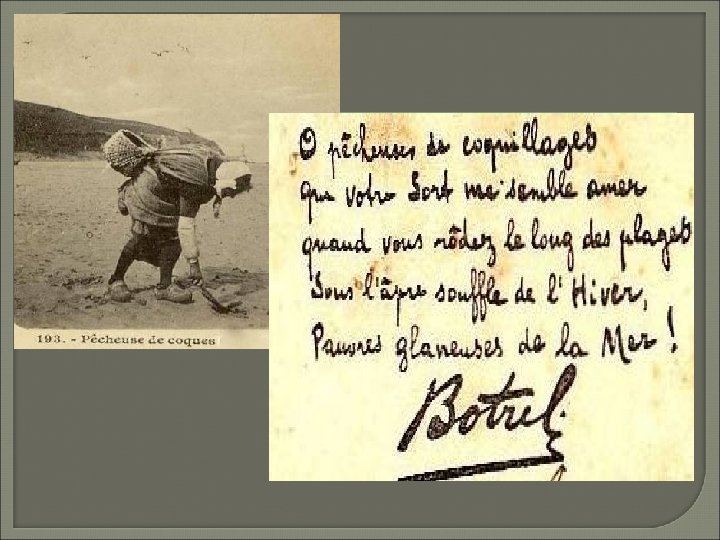 193. - Pêcheuse de coques
O pêcheuses de coquillages
que votre Sort me semble amer
quand vous rôdez le long des plages
Sous l'âpre souffle de l'Hiver,
Pauvres glaneuses de la Mer !
Botrel.